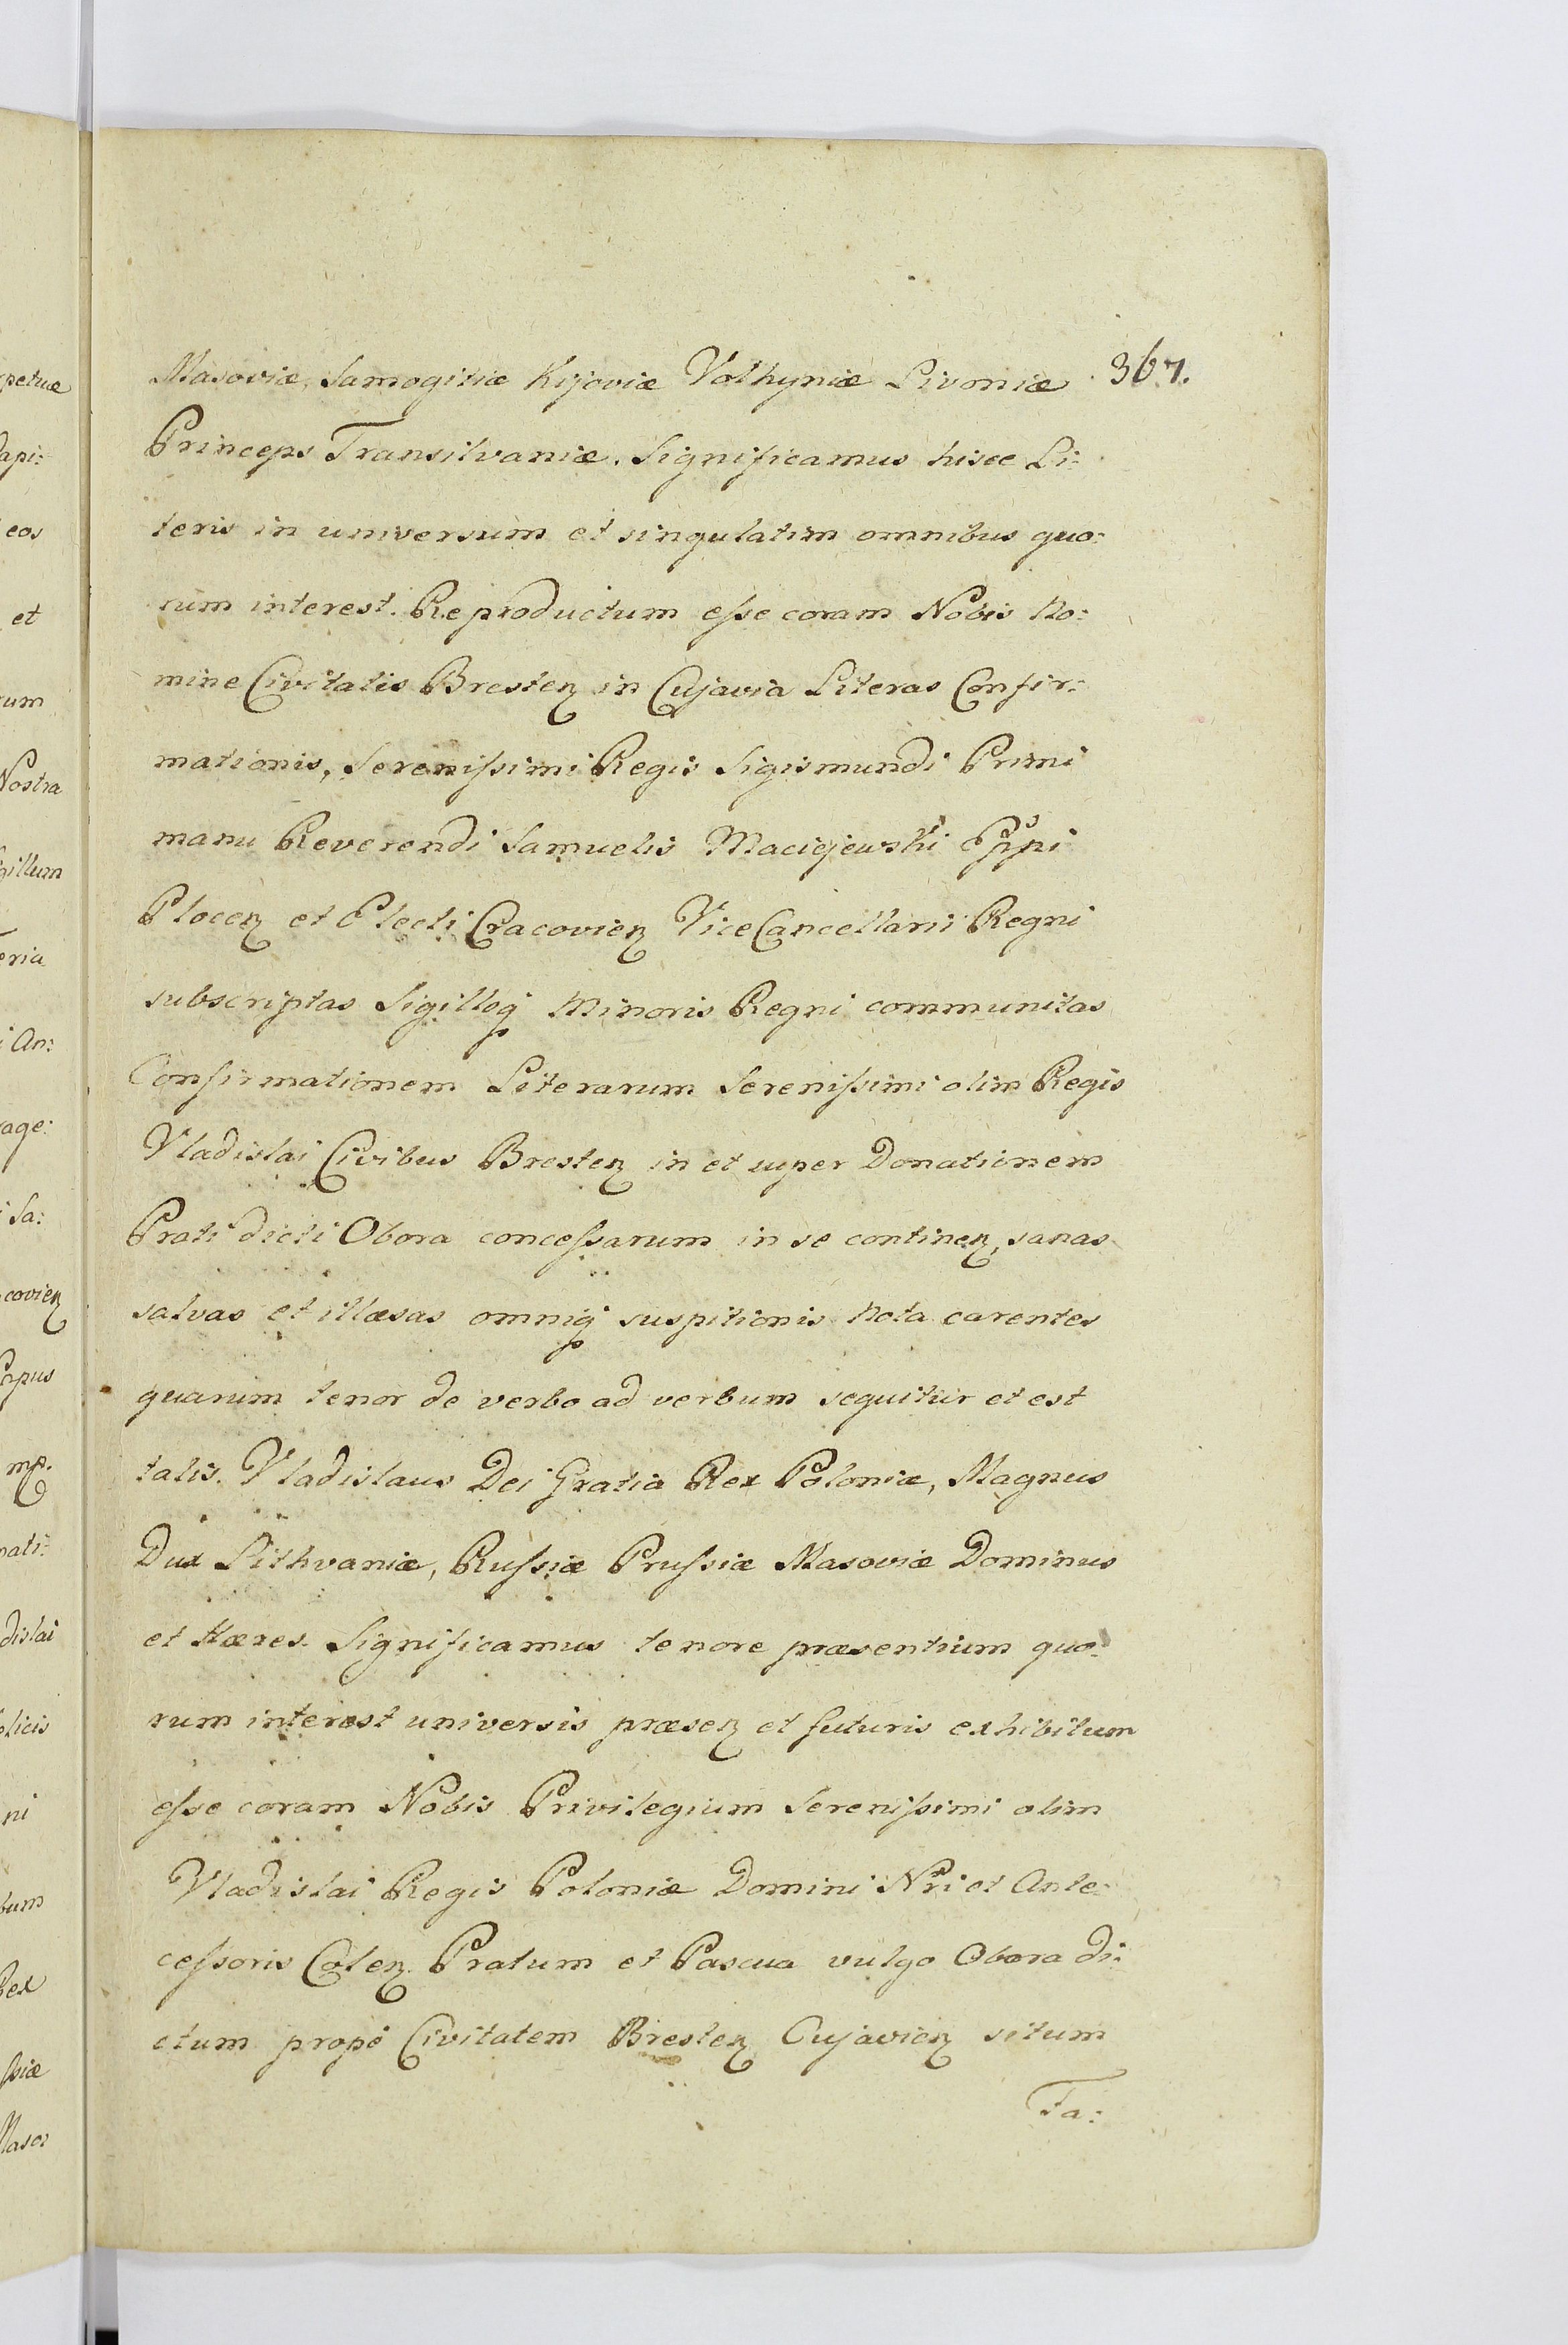 Masoviæ, Samogitiæ Kijoviæ Volhyniæ Livoniæ 367.
Princeps Transilvaniæ. Significamus hisce Li:
teris in universum et singulatim omnibus quo:
rum interest. Reproductum eſse coram Nobis No:
mine Civitatis Bresteɳ in Cujavia Literas Confir:
mationis, Sereniſsimi Regis Sigismundi Primi
manu Reverendi Samuelis Maciejewski Eppi
Ploceɳ et Electi Cracovieɳ ViceCancellarii Regni
subscriptas Sigilloq̃ Minoris Regni communitas
Confirmationem Literarum Sereniſsimi olim Regis
Vladislai Civibus Bresteɳ in et super Donationem
Prati dicti Obora conceſsarum in se contineɳ, sanas
salvas et illæsas omniq̃ suspitionis nota carentes
quarum tenor de verbo ad verbum sequitur et est
talis. Vladislaus Dei Gratia Rex Poloniæ, Magnus
Dux Lithvaniæ, Ruſsiæ Pruſsiæ Masoviæ Dominus
et Hæres. Significamus tenore præsentium quo:
rum interest universis præseɳ et futuris exhibitum
eſse coram Nobis Privilegium Sereniſsimi olim
Vladislai Regis Poloniæ Domini Nri et Ante:
ceſsoris Coleɳ Pratum et Pascua vulgo Obora di:
ctum propè Civitatem Bresteɳ Cujavieɳ situm
Ta:
petuæ
api:
eos
et
um
Nostra
gillum
eria
An:
age:
Sa:
covieɳ
mp.
nati:
dislai
licis
ni
bum
ex
ſsiæ
Maso: